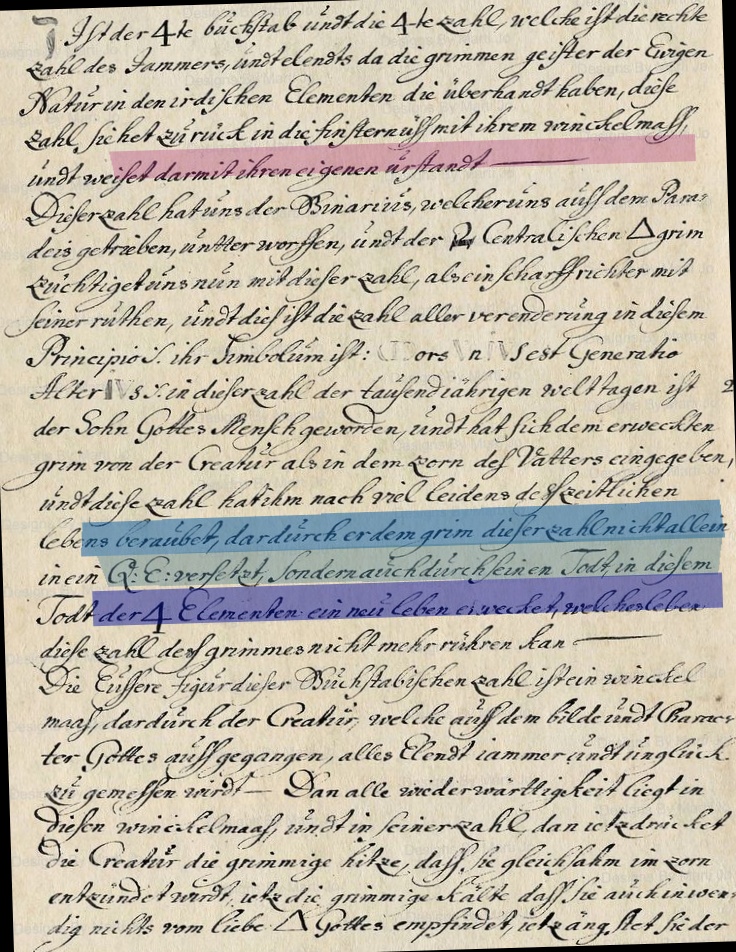 I Ist der 4te buchstab undt die 4-te zahl, welche ist die rechte
zahl des Jammers, undt elendts da die grimmen geister der Ewigen
Natur in den irdischen Elementen die überhandt haben, diese
zahl siehet zurück in die finsternüss mit ihrem winckelmass,
undt weiset darmit ihren eigenen urstandt —
Dieser zahl hat uns der Binarius, welcher uns auss dem Para-
deis getrieben, untter worffen, undt der Centralischen △ grim
züchtiget uns nun mit dieser zahl, als ein scharffrichter mit
seiner ruthen, undt dies ist die zahl aller verenderung in diesem
Principio :/. ihr Simbolum ist: Mors vnIVs est Generatio
AlterIVs :/. in dieser zahl der tausendjährigen welttagen ist 2
der Sohn Gottes Mensch geworden, undt hat sich dem erweckten
grim von der Creatur als in dem zorn dess Vatters eingegeben,
undt diese zahl hat ihm nach viel leidens dess zeitlichen
lebens beraubet, dardurch er dem grim dieser zahl nicht allein
in ein Q: E: versetzt, Sondern auch durch seinen Todt, in diesem
Todt der 4 Elementen ein neu leben erwecket, welches leben
diese zahl dess grimmes nicht mehr rühren kan —
Die Eussere figur dieser Buchstabischen zahl ist ein winckel
maas, dardurch der Creatur, welche auss dem bilde undt Charac-
ter Gottes aussgegangen, alles Elendt iammer undt unglück
zu gemessen wirdt — Dan alle wiederwärtigkeit liegt in
diesen winckelmaas, undt in seiner zahl, dan ietz drücket
die Creatur die grimmige hitze, dass sie gleichsahm im zorn
entzündet wirdt, ietz die grimmige Kälte dass sie auch inwen-
dig nichts vom liebe △ Gottes empfindet, ietz ängstet sie der